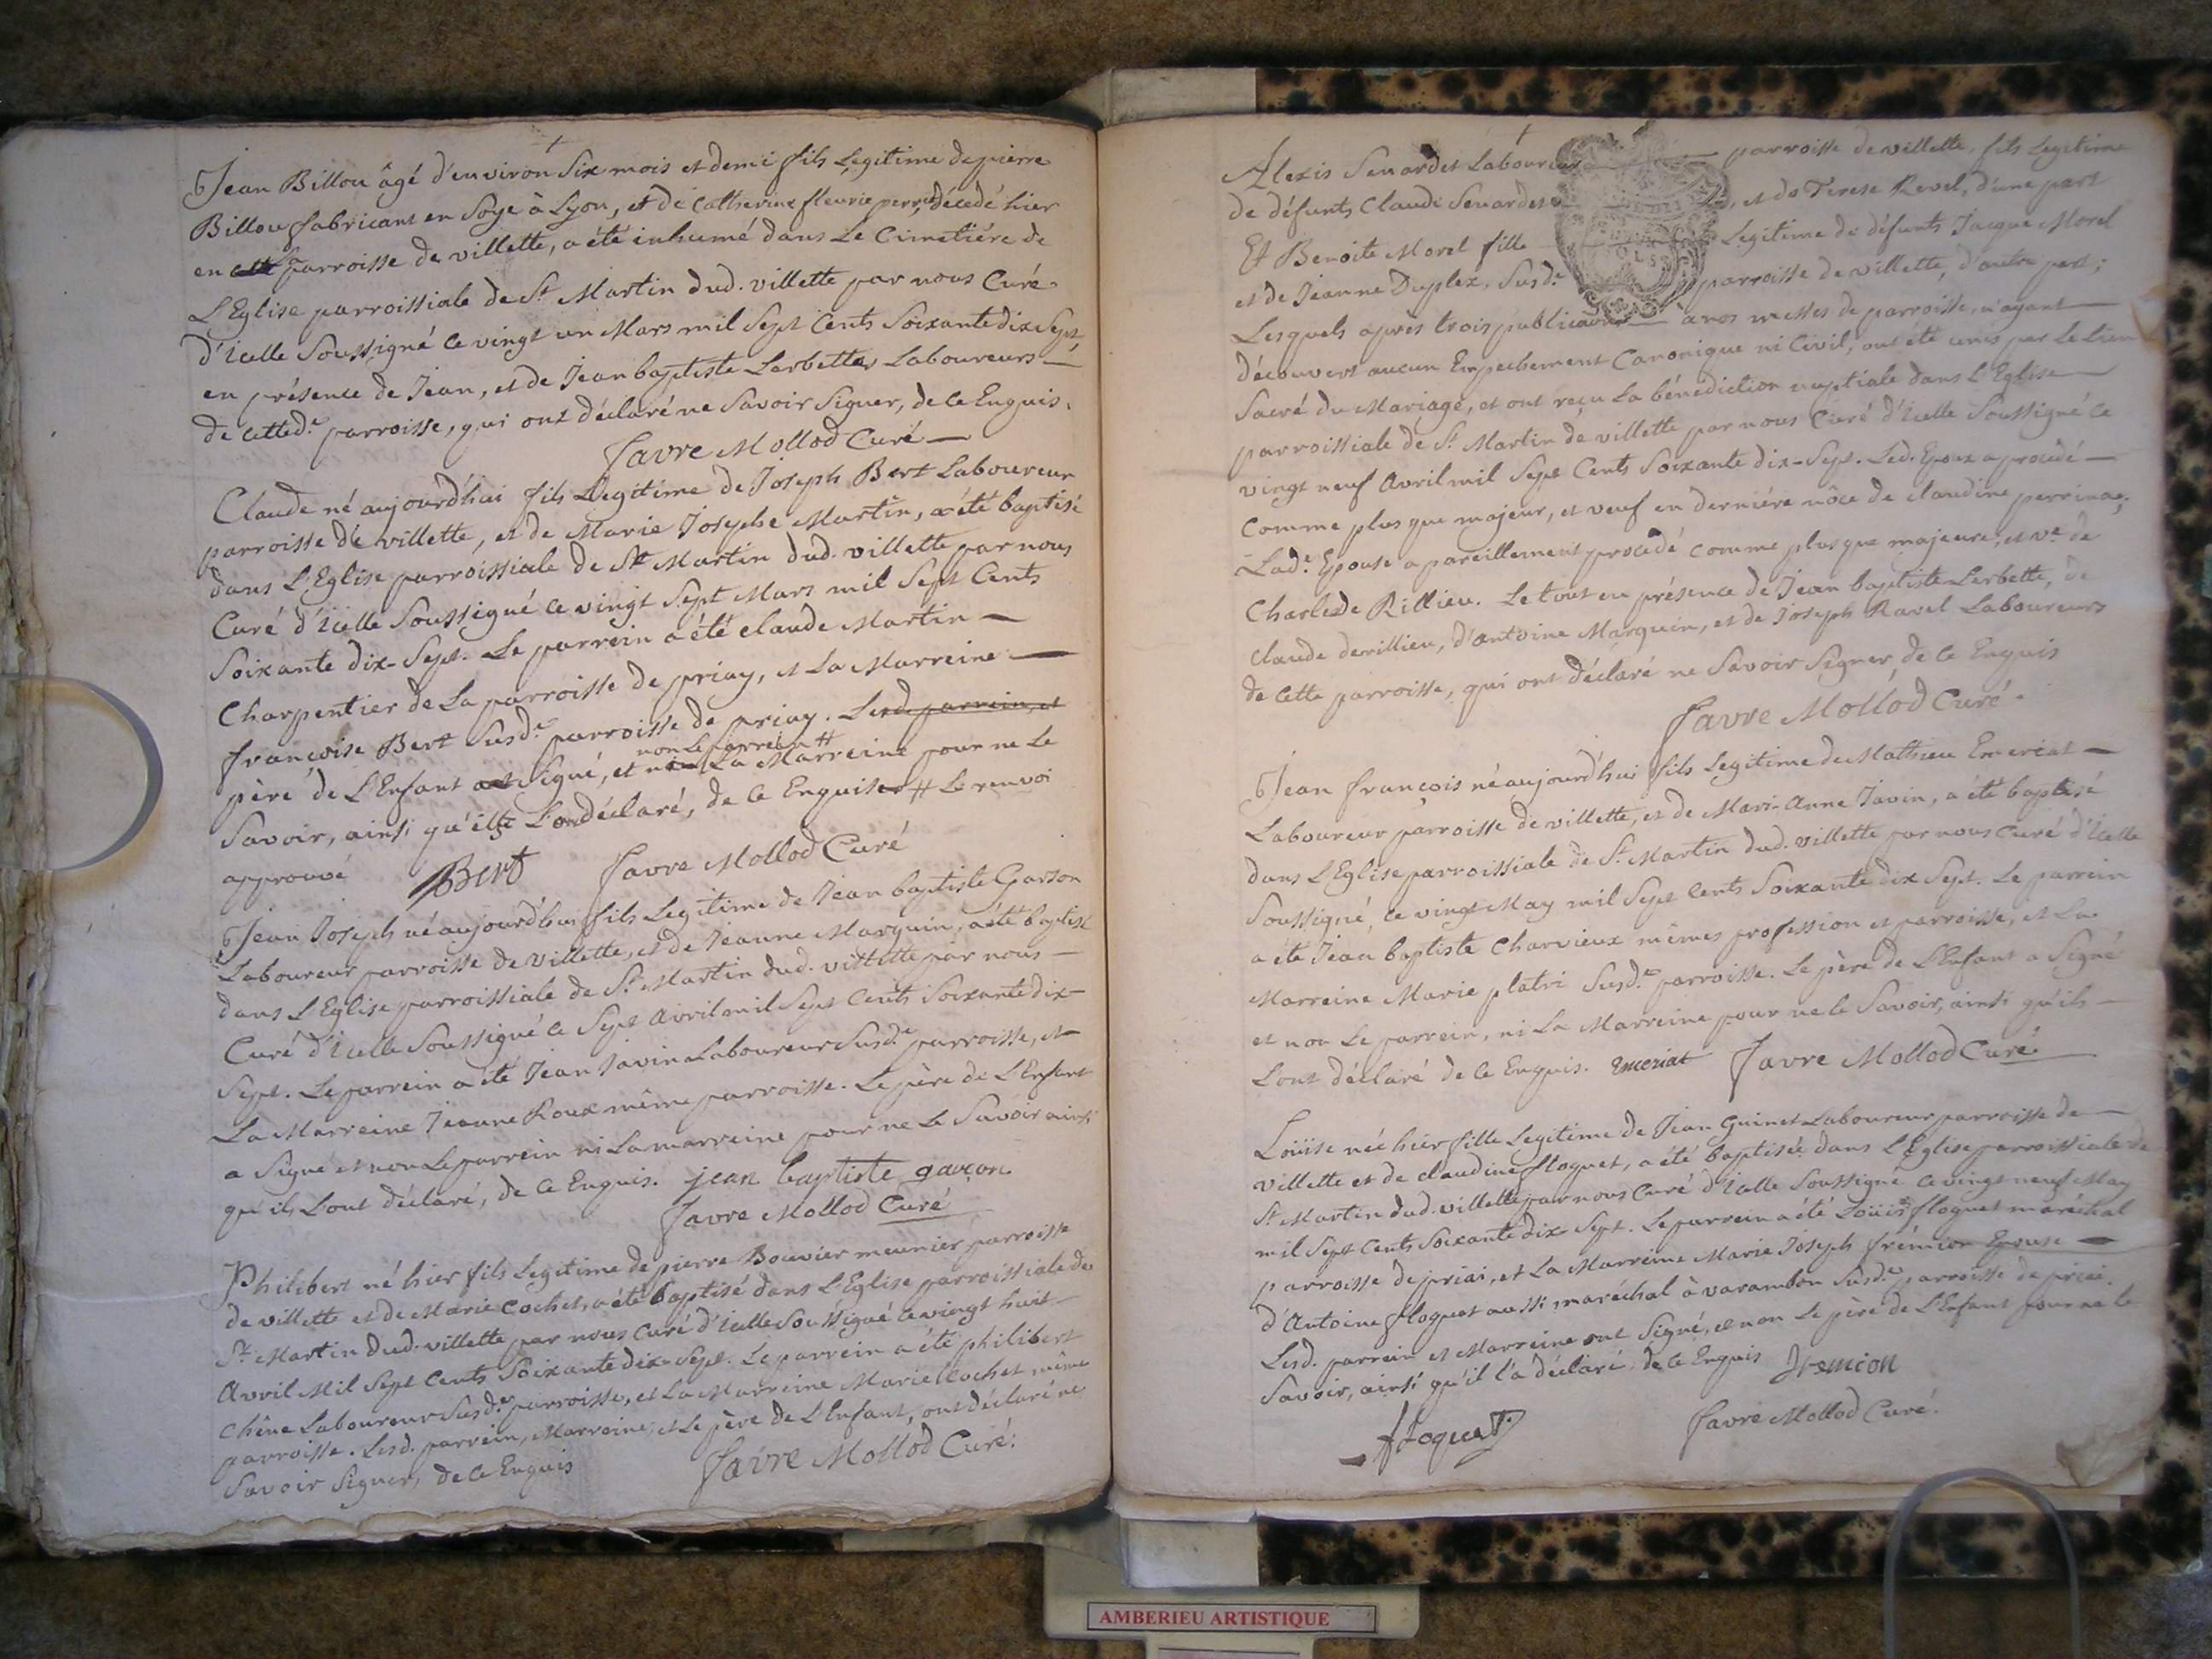 Jean Billou âgé d'environ Six mois et demi fils Legitime de pierre
Billou fabricant en Soye à Lyon, et de Catherine fleurie perret, décédé hier
en parroisse de villette, a été inhumé dans Le Cimetiére de
L'Eglise parroissiale de St Martin dud. villette par nous Curé
d'icelle Soussigné ce vingt un Mars mil Sept Cents Soixante dix Sept,
en présence de Jean, et de Jean baptiste Larbette Laboureurs
de cetted.e parroisse, qui ont déclaré ne Savoir Signer, de ce Enquis.
Favre Mollod Curé
Claude né aujourd'hui fils Legitime de Joseph Bert Laboureur
parroisse de villette, et de Marie Josephe Martin, a été baptisé
dans L'Eglise parroissiale de St Martin dud. villette par nous
Curé d'icelle Soussigné ce vingt Sept Mars mil Sept Cents
Soixante dix-Sept. Le parrein a été claude Martin
Charpentier de La parroisse de priay, et La Marreine
françoise Bert Susd.e parroisse de priay. Lesd. parrein, et
non Le parrein #
père de L'Enfant a Signé, et La Marreine pour ne Le
Savoir, ainsi qu'ils L'ont déclaré, de ce Enquis # Le renvoi
approuvé Bert Favre Mollod Curé
Jean Joseph né aujourd'hui fils Legitime de Jean baptiste Garson
Laboureur parroisse de villette, et de Jeanne Marquin, a été baptisé
dans L'Eglise parroissiale de St Martin dud. villette par nous
Curé d'icelle Soussigné ce Sept Avril mil Sept Cents Soixante dix-
Sept. Le parrein a été Jean Javin Laboureur Susd.e parroisse, et
La Marreine Jeanne Roux même parroisse. Le père de L'Enfant
a Signé et non Le parrein ni La marreine pour ne Le Savoir ainsi
qu'ils L'ont déclaré, de ce Enquis. jean baptiste garçon
Favre Mollod Curé
Philibert né hier fils Legitime de pierre Bouvier meunier parroisse
de villette et de Marie Cochet, a été baptisé dans L'Eglise parroissiale de
St Martin dud. villette par nous Curé d'icelle Soussigné ce vingt huit
Avril Mil Sept Cents Soixante dix-Sept. Le parrein a été philibert
Chêne Laboureur Susd.e parroisse, et La Marreine Marie Cochet même
parroisse. Lesd. parrein, Marreine, et Le père de L'Enfant, ont déclaré ne
Savoir Signer, de ce Enquis Favre Mollod Curé.
Alexis Senardet Laboureur parroisse de villette, fils Legitime
de défunts Claude Senardet, et de Terese Revel, d'une part
Et Benoite Morel fille Legitime de défunts Jacque Morel
et de Jeanne Duplex, Susd.e parroisse de villette, d'autre part;
Lesquels après trois publications à nos messes de parroisse, n'ayant
découvert aucun Empechement Canonique ni Civil, ont été unis par Le Lien
Sacré du Mariage, et ont reçu La bénédiction nuptiale dans L'Eglise
parroissiale de St Martin de villette par nous Curé d'icelle Soussigné ce
vingt neuf Avril mil Sept Cents Soixante dix-Sept. Led. Epoux a procédé
comme plus que majeur, et veuf en derniére nôce de claudine perrinae;
Lad.e Epouse a pareillement procédé comme plus que majeure, et v.e de
Charle de Rillieu. Le tout en présence de Jean baptiste Lerbette, de
claude derillieu, d'antoine Marquin, et de Joseph Ravel Laboureurs
de cette parroisse, qui ont déclaré ne Savoir Signer de ce Enquis
Favre Mollod Curé.
Jean françois né aujourd'hui fils Legitime de Mathieu Emeriat
Laboureur parroisse de villette, et de Mari-Anne Javin, a été baptisé
dans L'Eglise parroissiale de St Martin dud. villette par nous Curé d'icelle
Soussigné, ce vingt May mil Sept Cents Soixante dix Sept. Le parrein
a été Jean baptiste Charvieux mêmes profession et parroisse, et La
Marreine Marie platri Susd.e parroisse. Le père de L'Enfant a Signé
et non Le parrein, ni La Marreine pour ne le Savoir, ainsi qu'ils
L'ont déclaré de ce Enquis. Emeriat Favre Mollod Curé
Loüise née hier fille Legitime de Jean Guinet Laboureur parroisse de
villette et de claudine floquet, a été baptisée dans L'Eglise parroissiale de
St Martin dud. villette par nous Curé d'icelle Soussigné ce vingt neuf May
mil Sept Cents Soixante dix Sept. Le parrein a été Loüis floquet maréchal
parroisse de priai, et La Marreine Marie Joseph frémion Epouse
d'Antoine floquet aussi maréchal à varambon Susd.e parroisse de priai.
Lesd. parrein et Marreine ont Signé, et non Le père de L'Enfant pour ne le
Savoir, ainsi qu'il l'a déclaré de ce Enquis fremion
floquet Favre Mollod Curé.
AMBERIEU ARTISTIQUE